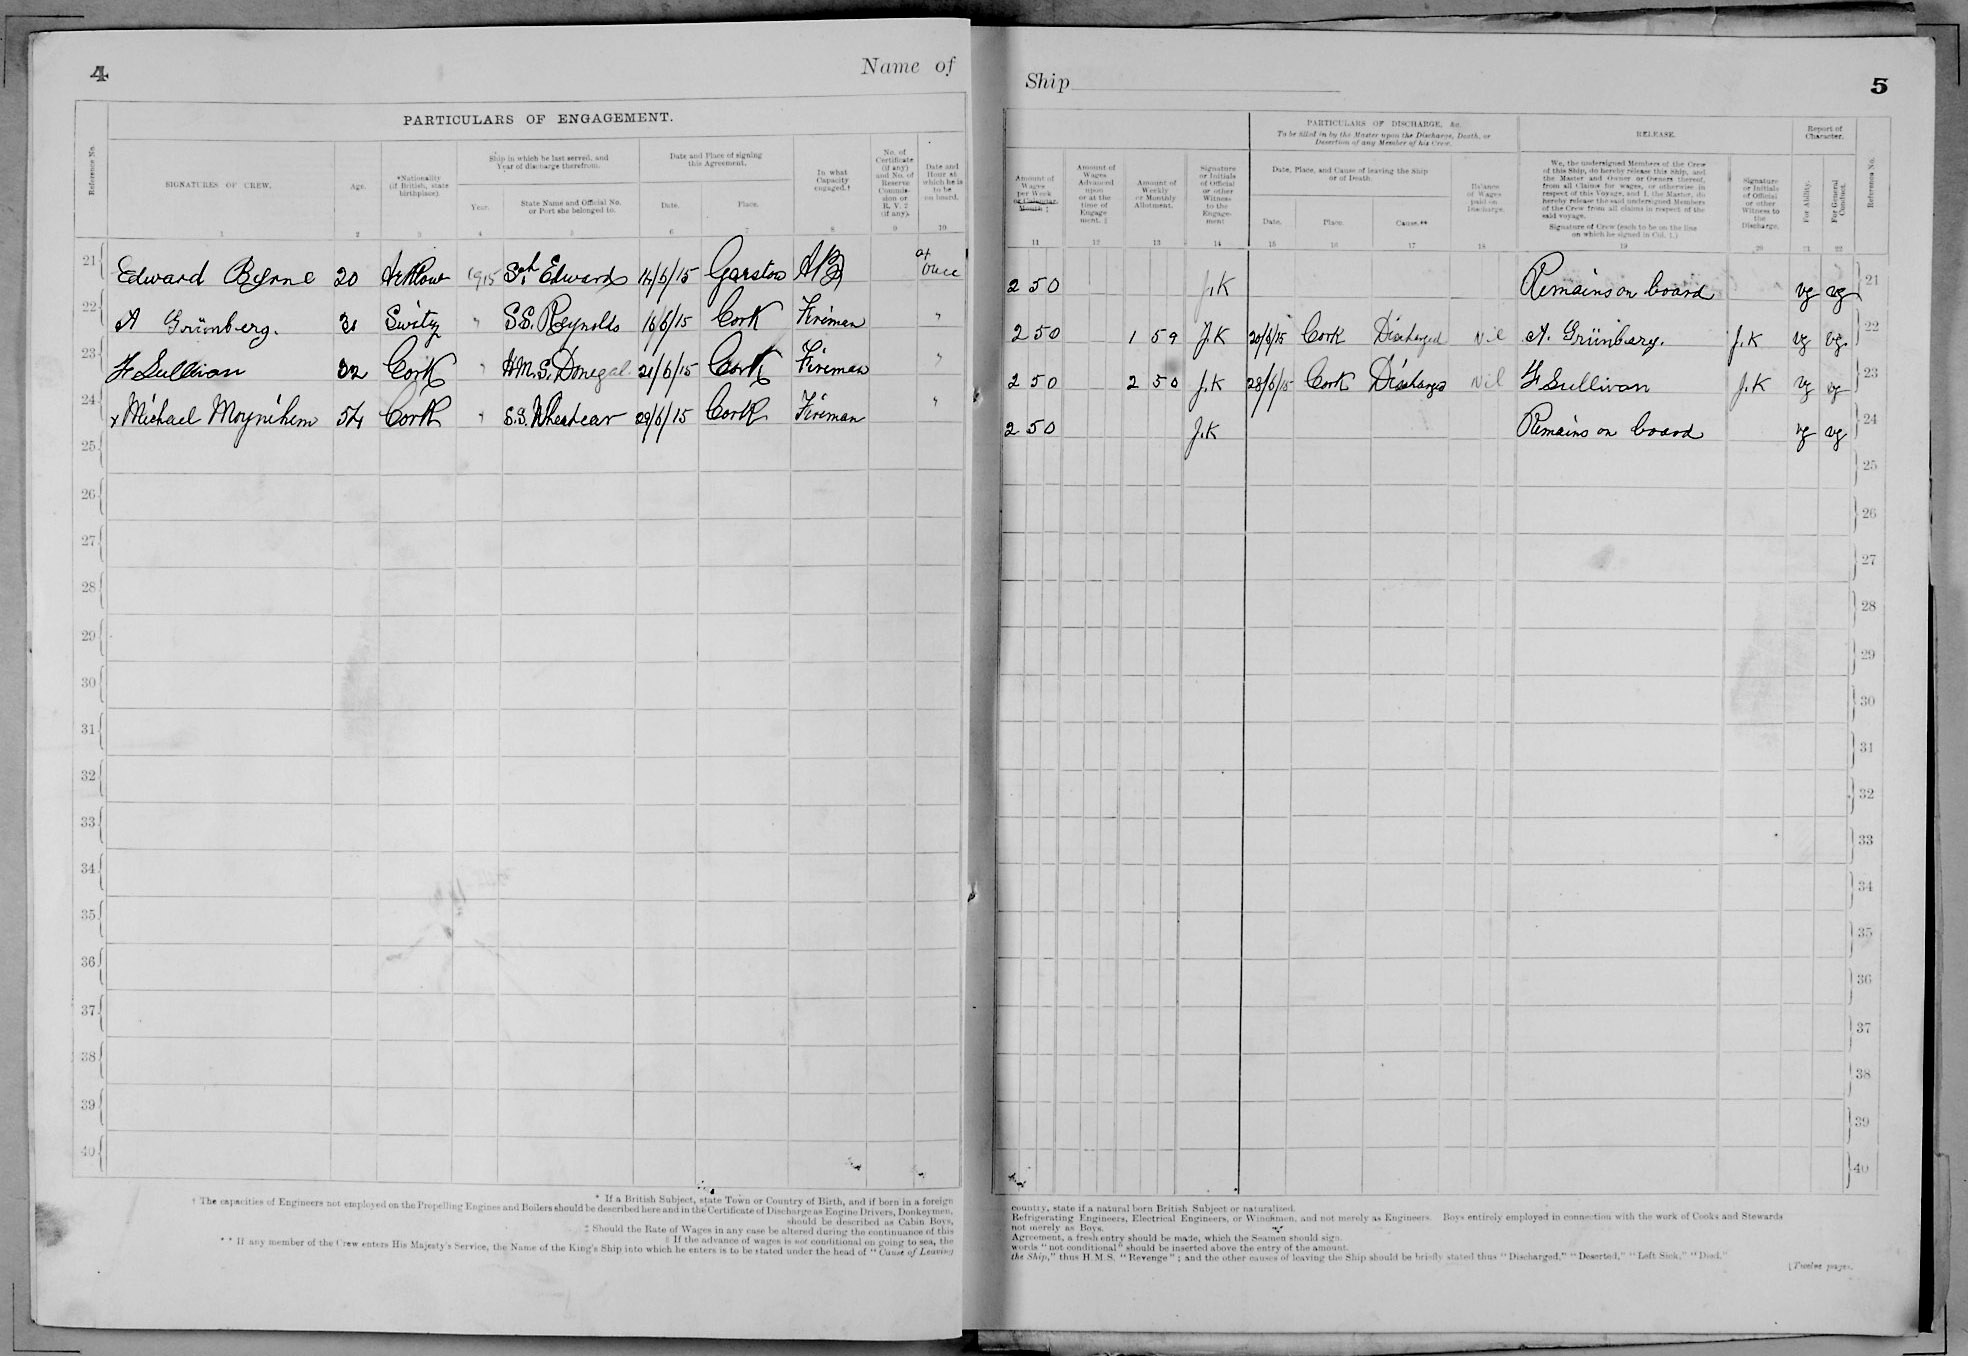 4
Name of
PARTICULARS OF ENGAGEMENT.
Reference No.
SIGNATURES OF CREW.
Age.
*Nationality (if British, state birthplace).
Ship in which he last served, and Year of discharge therefrom.
Year.
State Name and Official No. or Port she belonged to.
Date and Place of signing this Agreement.
Date.
Place.
In what Capacity engaged.†
No. of Certificate (if any) and No. of Reserve Commission or R. V. 2 (if any).
Date and Hour at which he is to be on board.
1 2 3 4 5 6 7 8 9 10
21 Edward Byrne 20 Arklow 1915 Sch Edwards 14/6/15 Garston AB at once
22 A Grünberg. 31 Switz " S.S. Reynolds 16/6/15 Cork Fireman "
23 F Sullivan 32 Cork " H.M.S. Donegal 21/6/15 Cork Fireman "
24 x Michael Moynihem 54 Cork " S.S. Wheatear 29/6/15 Cork Fireman "
25
26
27
28
29
30
31
32
33
34
35
36
37
38
39
40
* If a British Subject, state Town or Country of Birth, and if born in a foreign
† The capacities of Engineers not employed on the Propelling Engines and Boilers should be described here and in the Certificate of Discharge as Engine Drivers, Donkeymen,
should be described as Cabin Boys,
‡ Should the Rate of Wages in any case be altered during the continuance of this
‖ If the advance of wages is not conditional on going to sea, the
** If any member of the Crew enters His Majesty's Service, the Name of the King's Ship into which he enters is to be stated under the head of "Cause of Leaving
Ship
5
Amount of Wages per Week or Calendar Month ‡
Amount of Wages Advanced upon or at the time of Engagement. ‡
Amount of Weekly or Monthly Allotment.
Signature or Initials of Official or other Witness to the Engagement
PARTICULARS OF DISCHARGE, &c.
To be filled in by the Master upon the Discharge, Death, or Desertion of any Member of his Crew.
Date, Place, and Cause of leaving the Ship or of Death.
Date.
Place.
Cause.**
Balance of Wages paid on Discharge.
RELEASE.
We, the undersigned Members of the Crew of this Ship, do hereby release this Ship, and the Master and Owner or Owners thereof, from all Claims for wages, or otherwise in respect of this Voyage, and I, the Master, do hereby release the said undersigned Members of the Crew from all claims in respect of the said voyage.
Signature of Crew (each to be on the line on which he signed in Col. 1.)
Signature or Initials of Official or other Witness to the Discharge.
Report of Character.
For Ability.
For General Conduct.
Reference No.
11 12 13 14 15 16 17 18 19 20 21 22
2 5 0 J.K Remains on board vg vg 21
2 5 0 1 5 9 J.K 20/6/15 Cork Discharged Nil A. Grünberg. J.K vg vg. 22
2 5 0 2 5 0 J.K 28/6/15 Cork Discharge Nil F Sullivan J.K vg vg 23
2 5 0 J.K Remains on board vg vg 24
25
26
27
28
29
30
31
32
33
34
35
36
37
38
39
40
country, state if a natural born British Subject or naturalized.
Refrigerating Engineers, Electrical Engineers, or Winchmen, and not merely as Engineers. Boys entirely employed in connection with the work of Cooks and Stewards
not merely as Boys.
Agreement, a fresh entry should be made, which the Seamen should sign.
words "not conditional" should be inserted above the entry of the amount.
the Ship," thus H.M.S. "Revenge"; and the other causes of leaving the Ship should be briefly stated thus "Discharged," "Deserted," "Left Sick," "Died."
[Twelve pages.